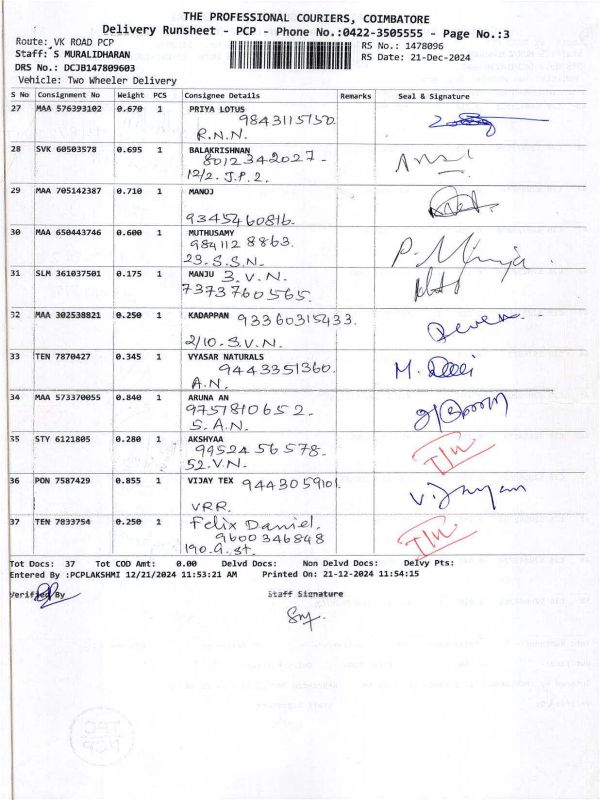 THE PROFESSIONAL COURIERS, COIMBATORE
Delivery Runsheet - PCP - Phone No.:0422-3505555 - Page No.:3
Route: VK ROAD PCP RS No.: 1478096
Staff: S MURALIDHARAN RS Date: 21-Dec-2024
DRS No.: DCJB147809603
Vehicle: Two Wheeler Delivery
S No Consignment No Weight PCS Consignee Details Remarks Seal & Signature
27 MAA 576393102 0.670 1 PRIYA LOTUS
9843115150.
R.N.N.
28 SVK 60503578 0.695 1 BALAKRISHNAN
8012342027-
12/2. J.P.2.
29 MAA 705142387 0.710 1 MANOJ
9345460816.
30 MAA 650443746 0.600 1 MUTHUSAMY
984112 8863.
23. S.S.N.
31 SLM 361037501 0.175 1 MANJU 3.V.N.
7373760565.
32 MAA 302538821 0.250 1 KADAPPAN 93360315433.
2/10. S.V.N.
33 TEN 7870427 0.345 1 VYASAR NATURALS
9443351360.
A.N.
34 MAA 573370055 0.840 1 ARUNA AN
9751810652-
S.A.N.
35 STY 6121805 0.280 1 AKSHYAA
99524 56578-
52.V.N.
36 PON 7587429 0.855 1 VIJAY TEX 9443059101.
VRR.
37 TEN 7833754 0.250 1 Felix Daniel.
9600346848
190.G.st.
Tot Docs: 37 Tot COD Amt: 0.00 Delvd Docs: Non Delvd Docs: Delvy Pts:
Entered By :PCPLAKSHMI 12/21/2024 11:53:21 AM Printed On: 21-12-2024 11:54:15
Verified By Staff Signature